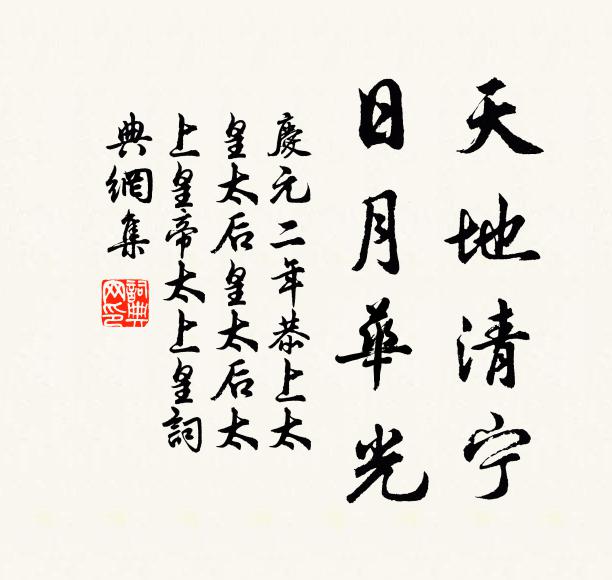 天地清宁
日月華光
慶元二年恭上太
皇太后皇太后太
上皇帝太上皇詞
典網集
詞典網印